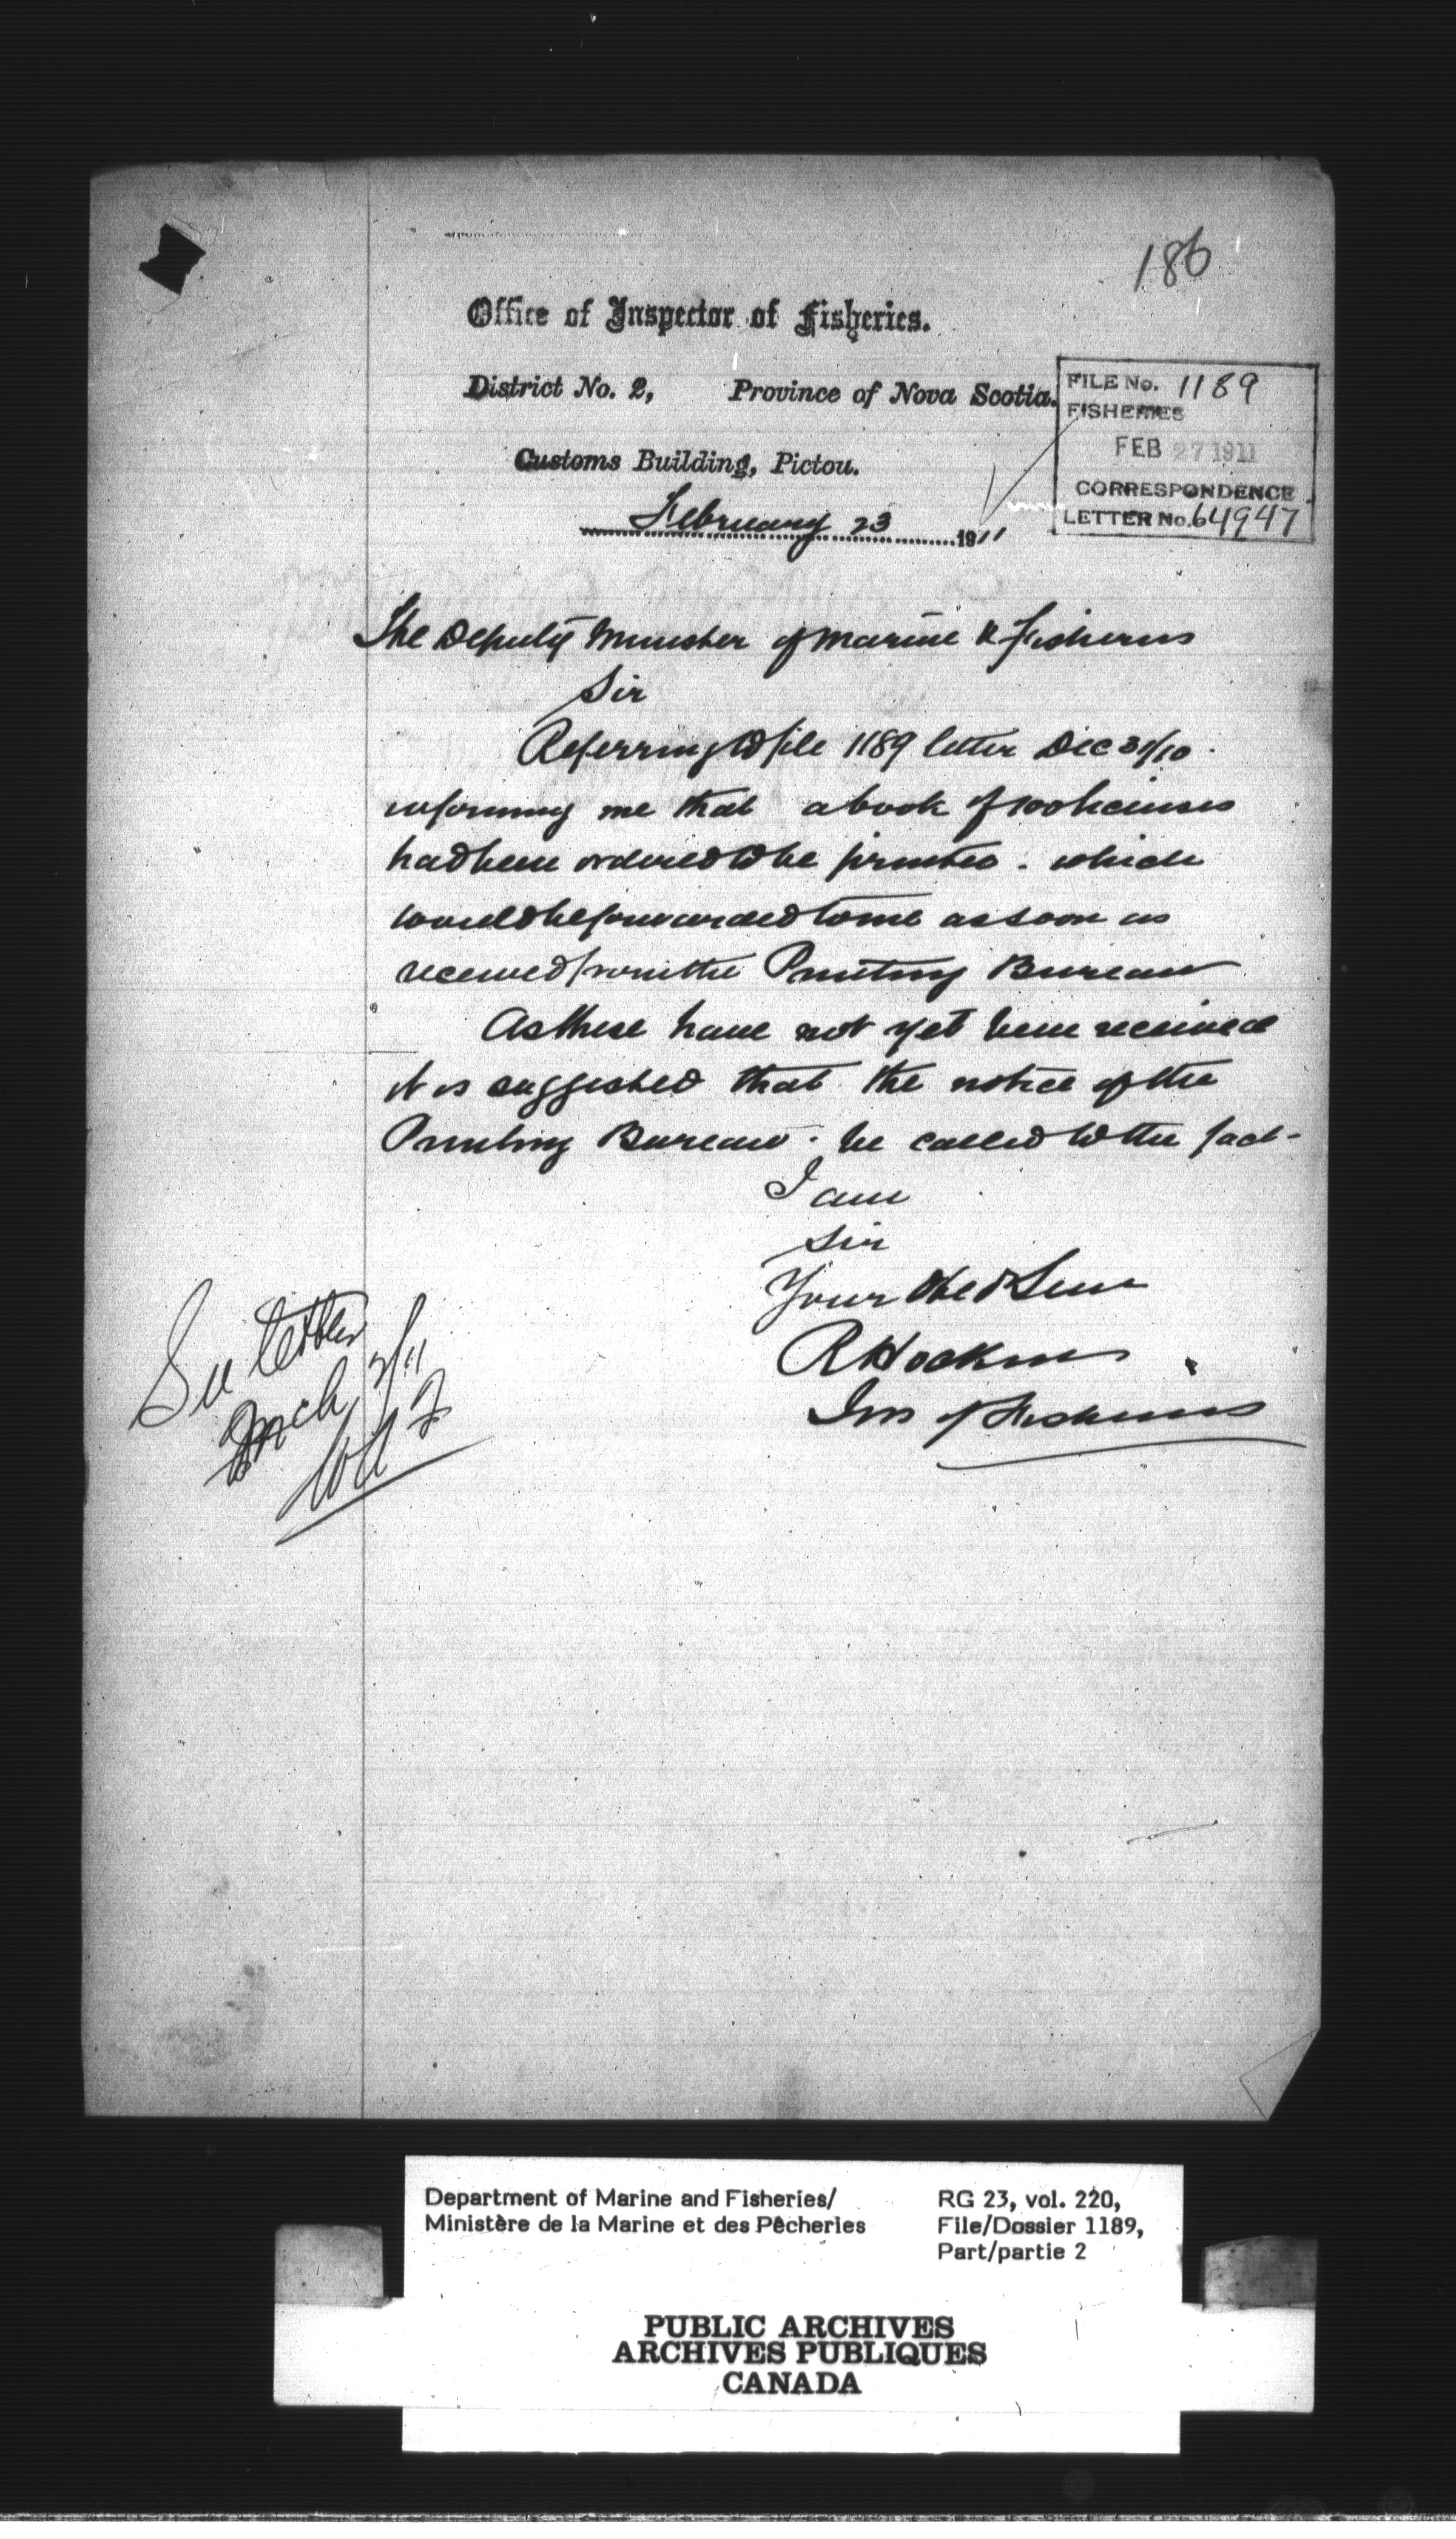 186
Office of Inspector of Fisheries.
District No. 2, Province of Nova Scotia.
Customs Building, Pictou.
February 23 1911
FILE No. 1189
FISHERIES
FEB 27 1911
CORRESPONDENCE
LETTER No. 64947
The Deputy Minister of Marine & Fisheries
Sir
Referring to file 1189 letter Dec 31/10.
informing me that a book of 100 licenses
had been ordered to be printed. which
would be forwarded to me as soon as
received from the Printing Bureau
As these have not yet been received
it is suggested that the notice of the
Printing Bureau. be called to the fact-
I am
Sir
Your Obed Serv
R Hockin
Ins of Fisheries
See letter
Mch
Department of Marine and Fisheries/
Ministère de la Marine et des Pêcheries
RG 23, vol. 220,
File/Dossier 1189,
Part/partie 2
PUBLIC ARCHIVES
ARCHIVES PUBLIQUES
CANADA